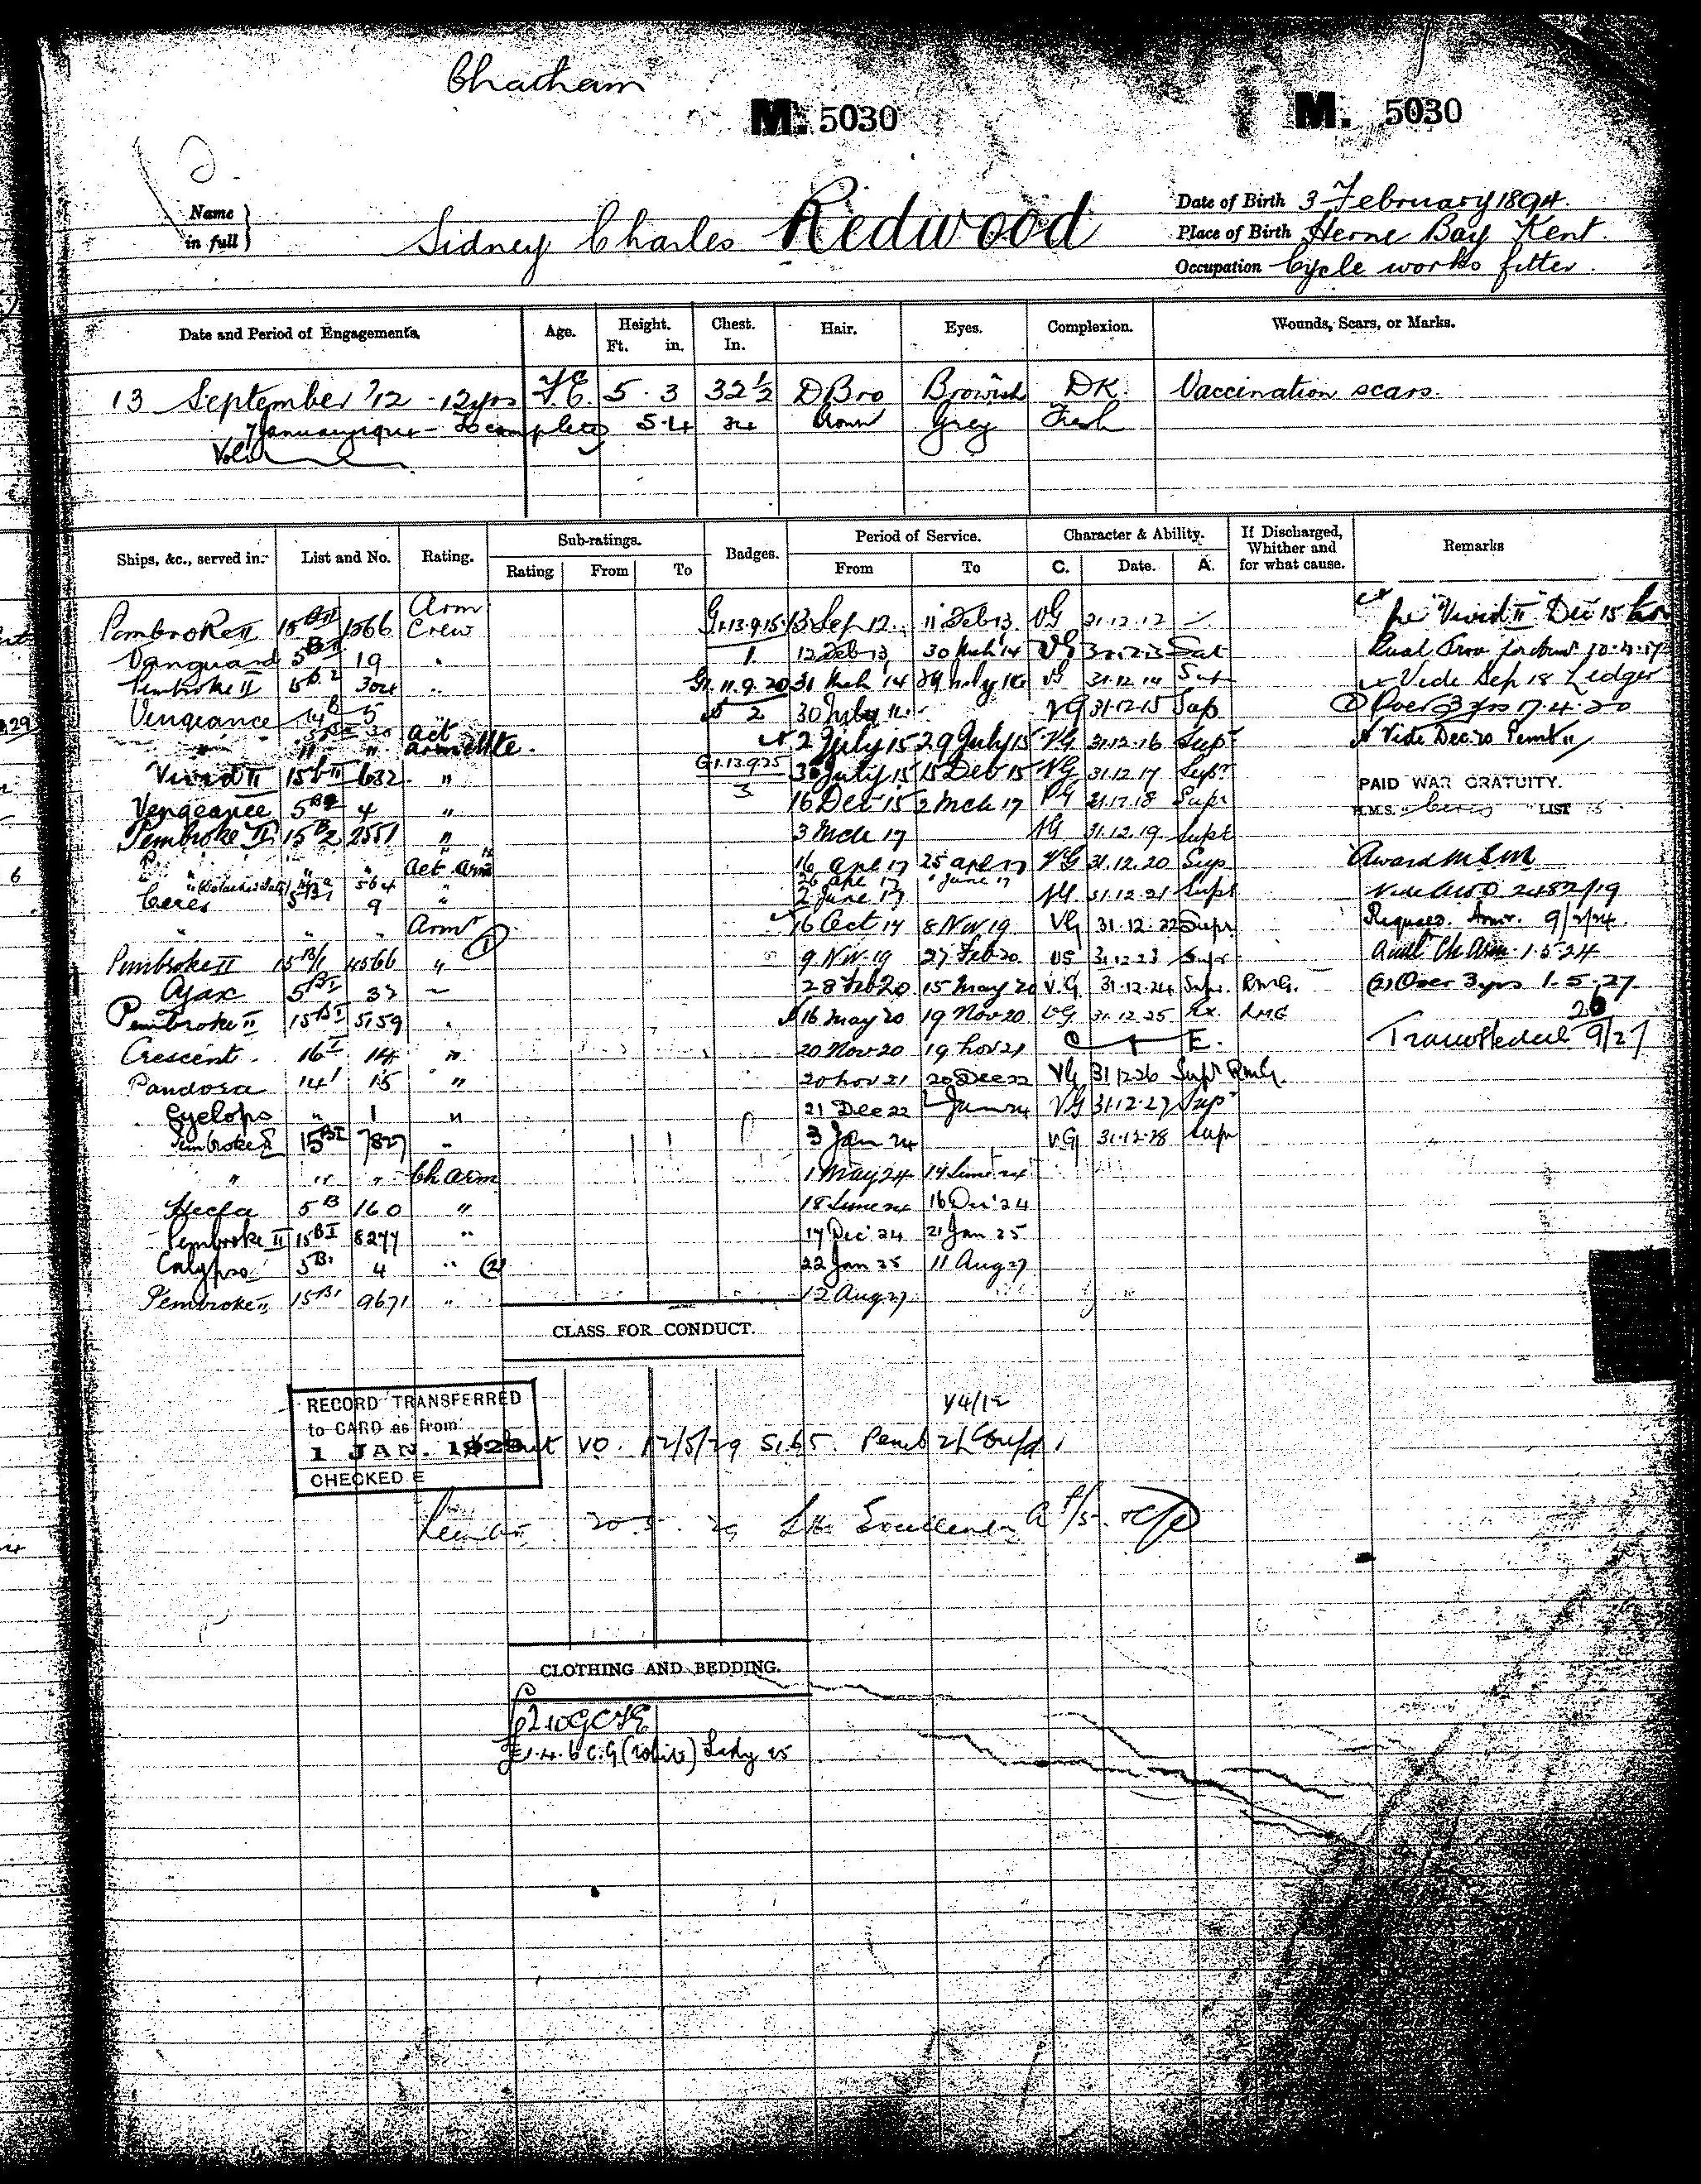 Chatham
M. 5030
M. 5030
Name in full
Sidney Charles Redwood
Date of Birth 3 February 1894.
Place of Birth Herne Bay Kent.
Occupation Cycle works fitter.
Date and Period of Engagements. Age. Height. Ft. in. Chest. In. Hair. Eyes. Complexion. Wounds, Scars, or Marks.
13 September '12 - 12 yrs 5 . 3 32 1/2 D Bro Brownish DK. Vaccination scars.
To complete 5.4 34 Brown Grey Fresh
Ships, &c., served in. List and No. Rating. Sub-ratings. Rating From To Badges. Period of Service. From To Character & Ability. C. Date. A. If Discharged, Whither and for what cause. Remarks
Pembroke II 15 B II 1566 Arm Crew G1.13.9.15 13 Sep 12 11 Feb 13 VG 31.12.12 per "Vivid II" Dec 15
Vanguard 5 19 " 1 12 Feb 13 30 Mch 14 VG Sat
Pembroke II 304 " 31 Mch 14 29 July 14 VG 31.12.14 Vide Sep 18 Ledger
Vengeance 5 2 30 July 14 VG 31.12.15 Over 3 yrs 17.4.20
" " " act arm mte. 2 July 15 29 July 15 VG 31.12.16 Supr Vide Dec 20 Pemb II
Vivid II 15 B II 632 " G1.13.9.25 3 30 July 15 15 Dec 15 VG 31.12.17 Supr PAID WAR GRATUITY.
Vengeance 5 4 " 16 Dec 15 2 Mch 17 VG 31.12.18 Supr H.M.S. Ceres LIST 5
Pembroke II 15 B 2 2551 " 3 Mch 17 VG 31.12.19 Supr
" " " Act Arm 16 Apl 17 25 Apl 17 VG 31.12.20 Sup Award MSM
" 564 " 26 Apl 17 1 June 17
Ceres 9 " 2 June 17 VG 31.12.21 Supr Vide AWO 2482/19
" " " Armr 16 Oct 17 8 Nov 19 VG 31.12.22 Supr 9/2/24
Pembroke II 15 B/1 4566 " (1) 9 Nov 19 27 Feb 20 VG 31.12.23 Supr Ch Arm 1.5.24
Ajax 5 B I 32 28 Feb 20 15 May 20 V.G 31.12.24 Supr. RMG. (2) Over 3 yrs 1.5.27
Pembroke II 15 B I 5159 " 16 May 20 19 Nov 20 VG 31.12.25 Ex. RMG 26
Crescent 16 I 14 " 20 Nov 20 19 Nov 21 E. 9/27
Pandora 14 I 15 " 20 Nov 21 20 Dec 22 VG 31.12.26 Supr RMG.
Cyclops " 1 " 21 Dec 22 2 Jan 24 VG 31.12.27 Supr
Pembroke II 15 B I 7827 " 3 Jan 24 VG 31.12.28 Supr
" " " Ch Arm 1 May 24 17 June 24
Hecla 5 B 160 " 18 June 24 16 Dec 24
Pembroke II 15 B I 8277 " 17 Dec 24 21 Jan 25
Calypso 5 B 1 4 " (2) 22 Jan 25 11 Aug 27
Pembroke II 15 B 1 9671 " 12 Aug 27
CLASS FOR CONDUCT.
RECORD TRANSFERRED
to CARD as from
1 JAN. 1929
CHECKED E
12/5/29
CLOTHING AND BEDDING.